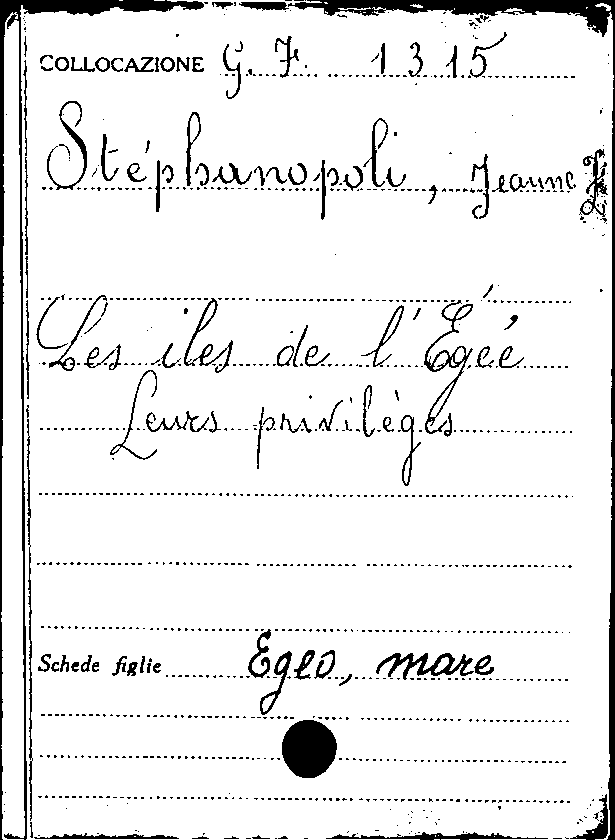 COLLOCAZIONE G. F. 1315
Stéphanopoli, Jeanne
Les iles de l'Égéé
Leurs privilèges
Schede figlie Egeo, mare